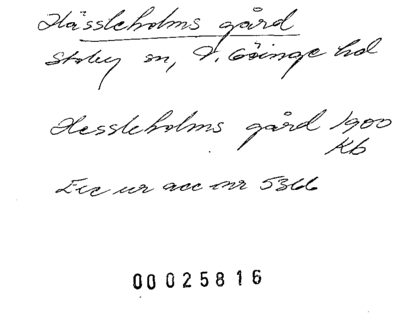 Hässleholms gård
Stoby sn, V. Göinge hd
Hessleholms gård 1900
Kb
Exc ur acc nr 5366
00025816